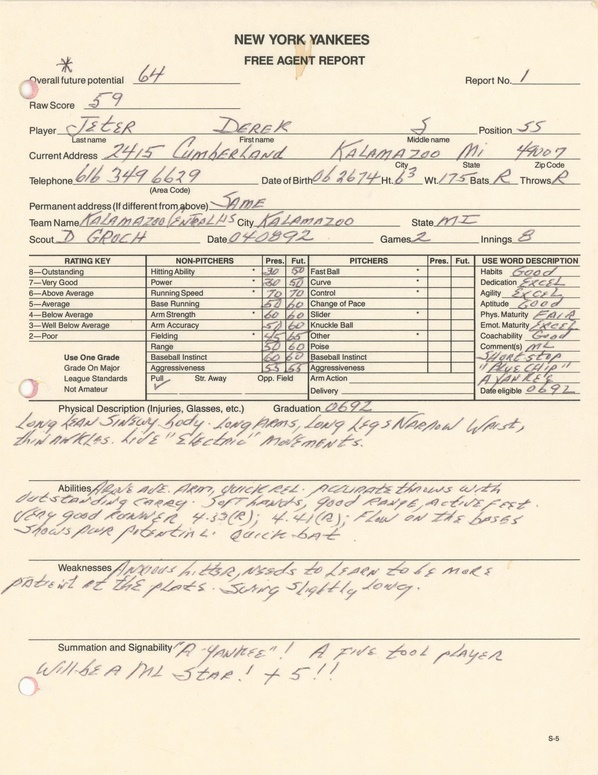 NEW YORK YANKEES
FREE AGENT REPORT
* Overall future potential 64 Report No. 1
Raw Score 59
Player JETER DEREK S Position SS
Last name First name Middle name
Current Address 2415 CUMBERLAND KALAMAZOO Mi 49007
City State Zip Code
Telephone 616 349 6629 Date of Birth 062674 Ht. 63 Wt. 175 Bats R Throws R
(Area Code)
Permanent address (If different from above) SAME
Team Name KALAMAZOO CENTRAL HS City KALAMAZOO State MI
Scout D GROCH Date 040892 Games 2 Innings 8
RATING KEY NON-PITCHERS Pres. Fut. PITCHERS Pres. Fut. USE WORD DESCRIPTION
8—Outstanding Hitting Ability * 30 50 Fast Ball * Habits Good
7—Very Good Power * 30 50 Curve * Dedication EXCEL
6—Above Average Running Speed * 70 70 Control * Agility EXCEL
5—Average Base Running 50 60 Change of Pace Aptitude Good
4—Below Average Arm Strength * 60 60 Slider * Phys. Maturity FAIR
3—Well Below Average Arm Accuracy 50 60 Knuckle Ball Emot. Maturity EXCEL
2—Poor Fielding * 45 65 Other * Coachability Good
Range 50 60 Poise Comment(s) ML
Use One Grade Baseball Instinct 60 60 Baseball Instinct SHORTSTOP
Grade On Major Aggressiveness 55 55 Aggressiveness "BLUE CHIP"
League Standards Pull Str. Away Opp. Field Arm Action A YANKEE
Not Amateur ✓ Delivery Date eligible 0692
Physical Description (Injuries, Glasses, etc.) Graduation 0692
LONG LEAN SINEWY body. LONG ARMS, LONG LEGS NARROW WAIST,
thin ANKLES. LIVE "ELECTRIC" MOVEMENTS.
Abilities ABOVE AVE. ARM, QUICK REL. ACCURATE throws with
OUTSTANDING CARRY. SOFT HANDS, GOOD RANGE, ACTIVE FEET.
VERY GOOD RUNNER 4.33(R); 4.41(R); FLOW ON the BASES
SHOWS POWR POTENTIAL. QUICK bat
Weaknesses ANXIOUS hitter, NEEDS to LEARN to be MORE
PATIENT AT the PLATE. SWING Slightly LONG.
Summation and Signability "A YANKEE"! A FIVE tool PLAYER
Will be A ML STAR! + 5!!
S-5